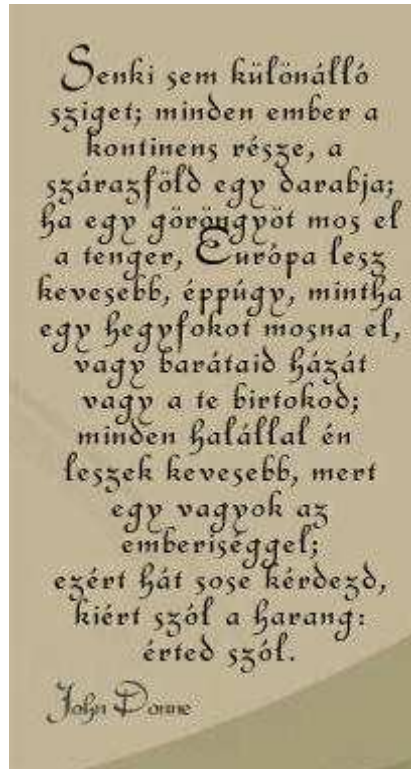 Senki sem különálló
sziget; minden ember a
kontinens része, a
szárazföld egy darabja;
ha egy göröngyöt mos el
a tenger, Európa lesz
kevesebb, éppúgy, mintha
egy hegyfokot mosna el,
vagy barátaid házát
vagy a te birtokod;
minden halállal én
leszek kevesebb, mert
egy vagyok az
emberiséggel;
ezért hát sose kérdezd,
kiért szól a harang:
érted szól.
John Donne